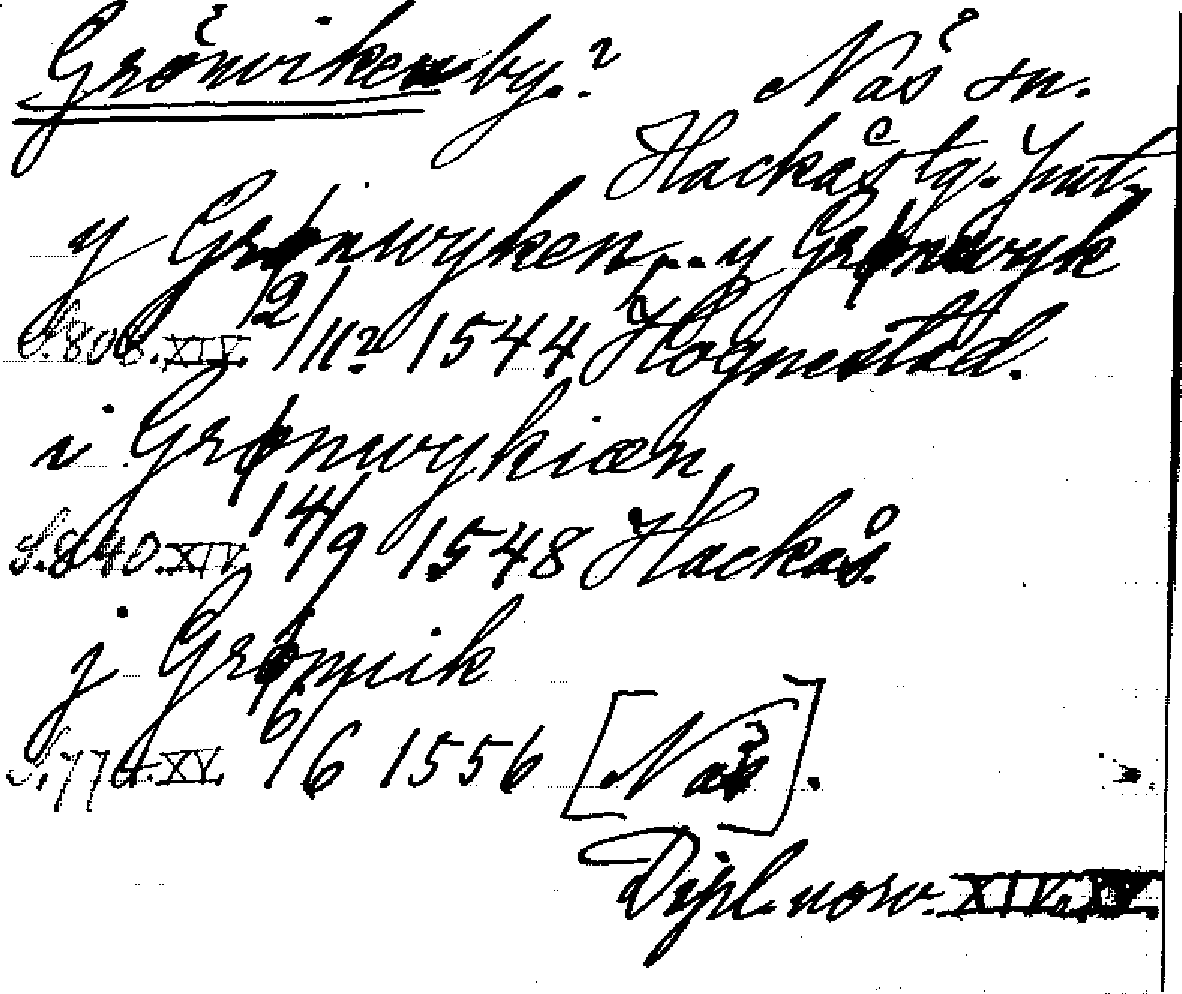 Grönviken by.? Näs sn.
Hackås tg. Jmt.
y Grønwyken... y Grønwyk
S. 808. XIV. 12/11? 1544 Hognestad.
i Grønwykiæn,
S. 840. XIV. 14/9 1548 Hackås.
j Grønuik
S. 774. XV. 6/6 1556 [Näs].
Dipl. norv. XIV. XV.